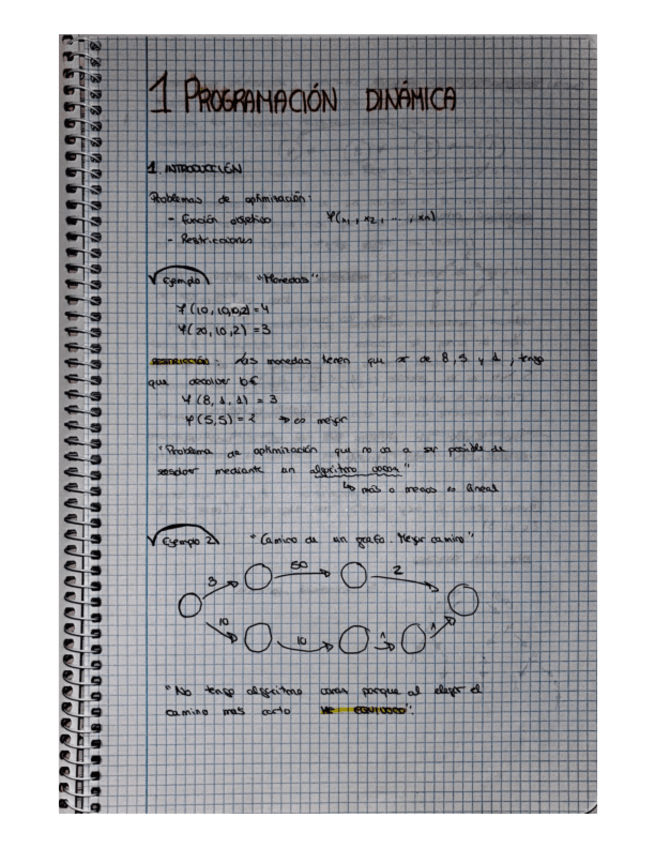 1 PROGRAMACIÓN DINÁMICA
1. INTRODUCCIÓN
Problemas de optimización:
- Función objetivo φ(x1, x2, ..., xn)
- Restricciones
Ejemplo "Monedas"
φ(10,10,0,2) = 4
φ(20,10,2) = 3
RESTRICCIÓN: Las monedas tienen que ser de 8, 5 y 1, tengo
que devolver 10€
φ(8,1,1) = 3
φ(5,5) = 2 → es mejor
"Problema de optimización que no va a ser posible de
resolver mediante un algoritmo voraz"
↳ más o menos es lineal
Ejemplo 2 "Camino de un grafo. Mejor camino"
3 50 2
10 10 1 1
"No tengo algoritmo voraz porque al elegir el
camino mas corto ME EQUIVOCO".